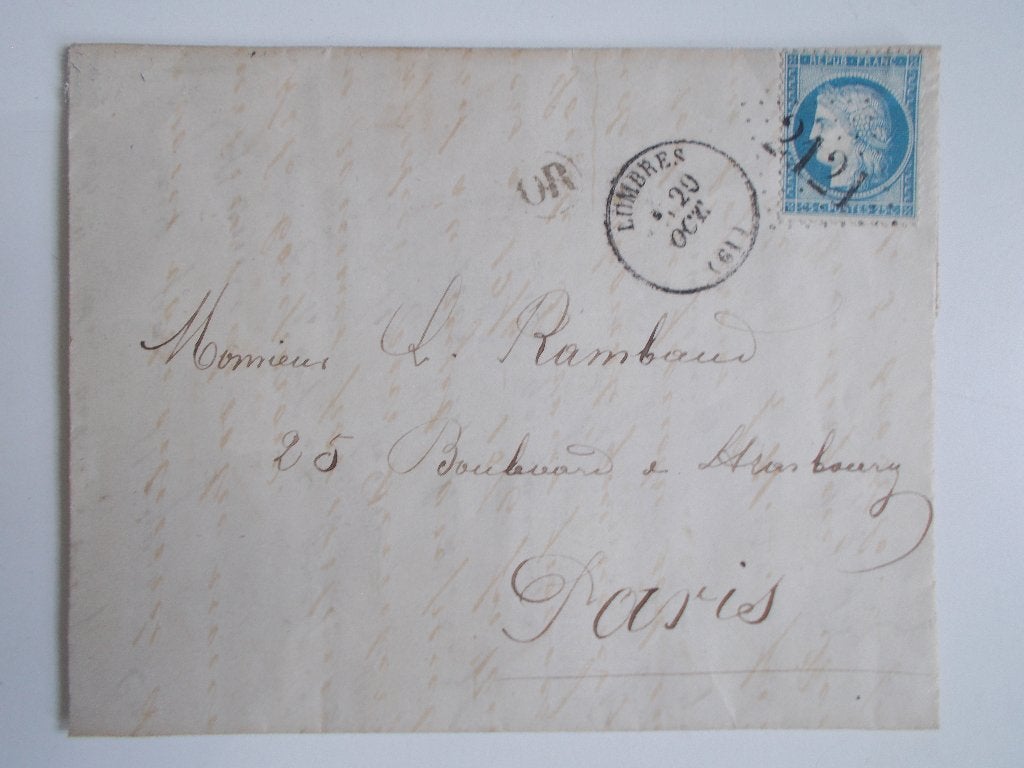 REPUB · FRANC ·
2121
25 C POSTES 25 C
LUMBRES
29
OCT
(19)
OR
Monsieur L. Rambaud
25 Boulevard de Strasbourg
Paris